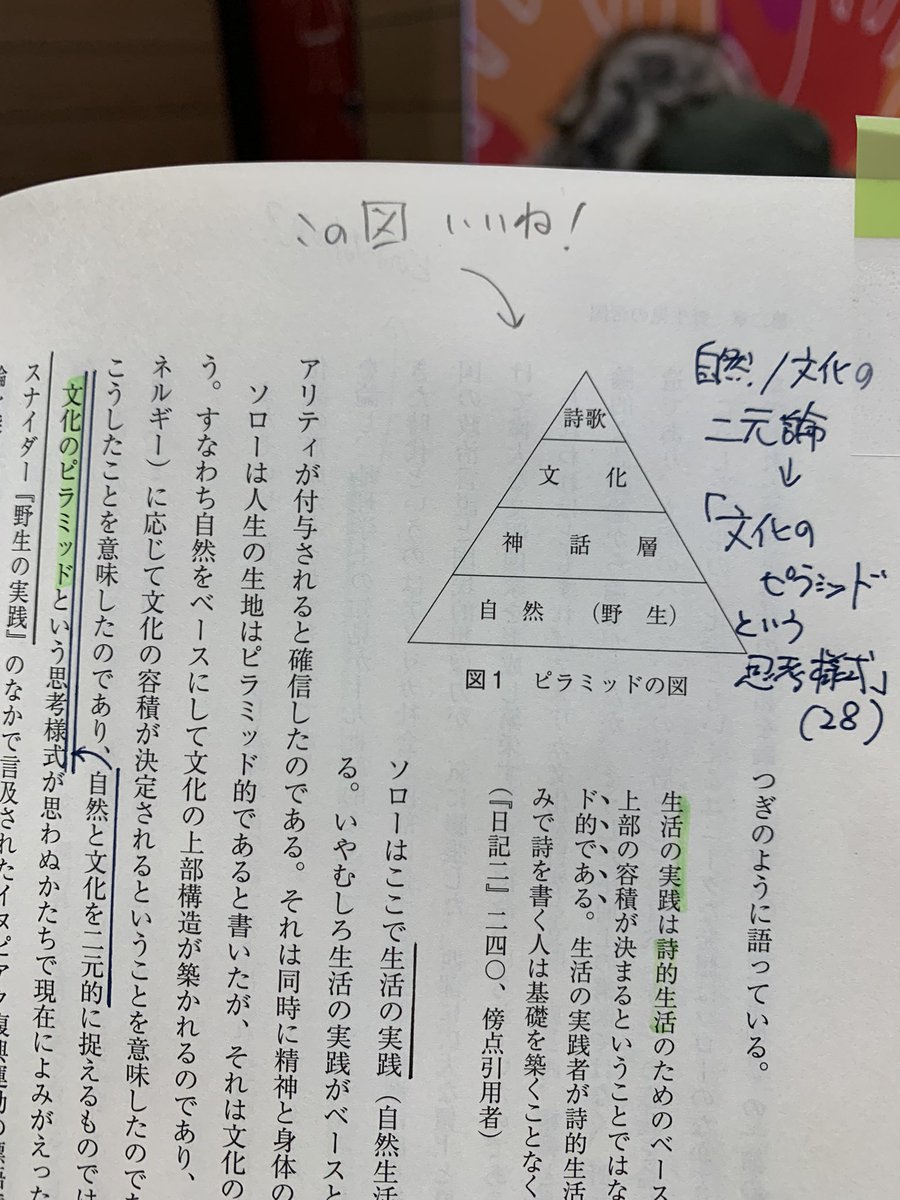 この図 いいね!
自然/文化の
二元論
↓
「文化の
ピラミッド
という
思考様式」
(28)
詩歌
文 化
神 話 層
自 然 (野 生)
図1 ピラミッドの図
つぎのように語っている。
生活の実践は詩的生活のためのベース
上部の容積が決まるということではな
ド的である。生活の実践者が詩的生活
みで詩を書く人は基礎を築くことなく
(『日記二』二四〇、傍点引用者)
ソローはここで生活の実践(自然生活
る。いやむしろ生活の実践がベースと
アリティが付与されると確信したのである。それは同時に精神と身体の
ソローは人生の生地はピラミッド的であると書いたが、それは文化の
う。すなわち自然をベースにして文化の上部構造が築かれるのであり、
ネルギー)に応じて文化の容積が決定されるということを意味したので
こうしたことを意味したのであり、自然と文化を二元的に捉えるものでは
文化のピラミッドという思考様式が思わぬかたちで現在によみがえった
スナイダー『野生の実践』のなかで言及されたイヌピアク復興運動の標語